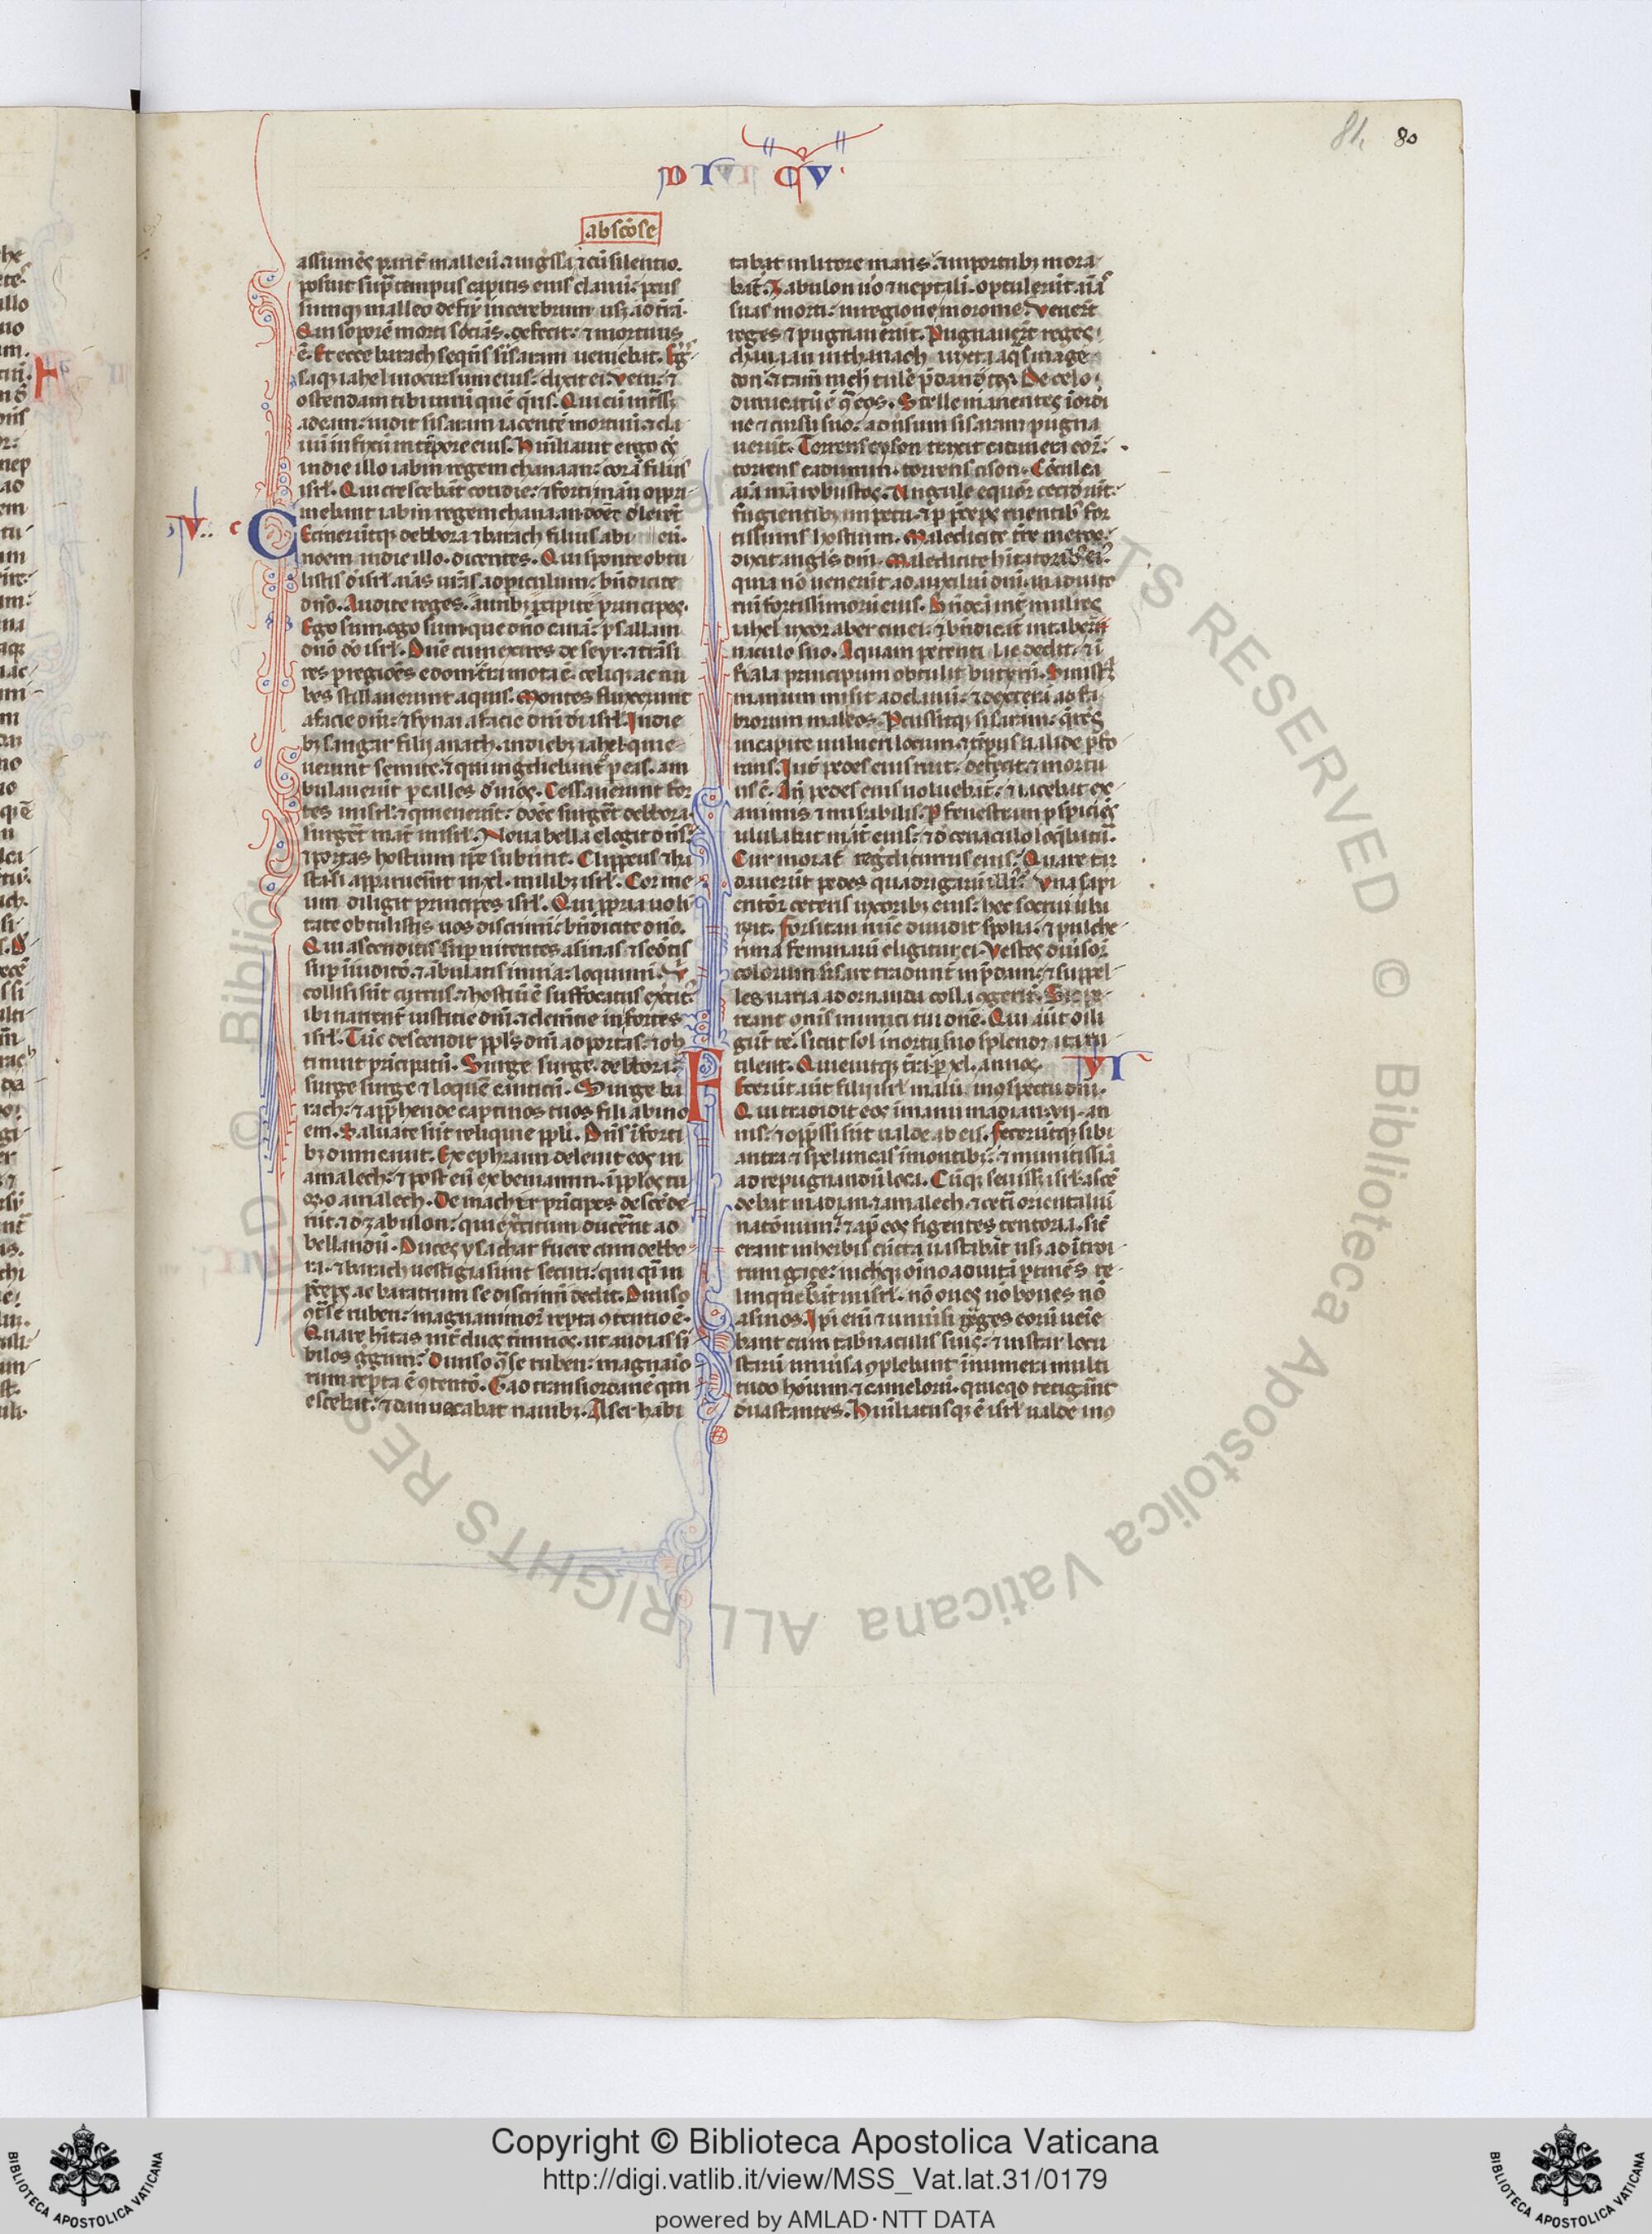 81 80
DIC QV
abscōse
assumēs parit̄ malleū ⁊ ingssa ⁊ cū silentio.
posuit sup̄ tempus capitis eius clauū: pcus
sumq; malleo defixit in cerebrum usq; ad t̄rā.
Qui soporē morti socians. defecit: ⁊ mortuus
ē. Et ecce barach seq̄ns sisaram ueniebat. Eg̃
saq; iahel in occursum eius: dixit ei. Veni: ⁊
ostendam tibi uirū quē q̄ris. Qui cū int̃sset
ad eam: uidit sisaram iacentē mortuū ⁊ cla
uū infixū in tēpore eius. Humiliauit ergo d̄s
in die illo iabin regem chanaan: corā filiis
isrl̄. Qui crescebāt cotidie: ⁊ forti manu oppri
mebant iabin regem chanaan donec delerēt
V. c Cecineruntq; debbora ⁊ barach filius abi eū.
noem in die illo. dicentes. Qui sponte obtu
listis d̄ isrl̄ aīas ur̄as ad piculum: bn̄dicite
dn̄o. Audite reges. aurib; pcipite principes.
Ego sum. ego sum que dn̄o canā: psallam
dn̄o do isrl̄. Dn̄e cum exires de seyr. ⁊ trāsi
res p regiões edom: t̄ra mota ē: celiq; ac nu
bes stillauerunt aquis. Montes fluxerunt
a facie dn̄i: ⁊ synai a facie dn̄i di isrl̄. In die
b; sangar filij anath. in dieb; iahel quie
uerunt semite: ⁊ qui ingdiebant̄ p eas. am
bulauerūt p calles deuios. Cessauerunt for
tes in isrl̄: ⁊ quieuerūt: donec surger̄t debbora
surger̄t mat̄ in isrl̄. Noua bella elegit dn̄s:
⁊ portas hostium ip̄e subuūt. Clippeus ⁊ ha
sta si apparuerīt in xl. milib; isrl̄. Cor me
um diligit principes isrl̄. Qui ppria uolū
tate obtulistis uos discrimī: bn̄dicite dn̄o.
Qui ascenditis sup nitentes asinas ⁊ sedētis
sup iudicio. ⁊ ābulatis in uia: loquimī. V̄
collisi sūt currus. ⁊ hostiū ē suffocatus exercit̄:
ibi narrent̄ iustitie dn̄i. ⁊ clem̄tie in fortes
isrl̄. Tūc descendit ppl̄s dn̄i ad portas: ⁊ ob
tinuit principatū. Surge surge. debbora:
surge surge ⁊ loquēe canticū. Surge ba
rach: ⁊ app̄hende captiuos tuos fili abino
em. Saluate sūt reliquie ppl̄i. Dn̄s ī forti
b; dimicauit. Ex ephraim deleuit eos in
amalech: ⁊ post eū ex beniamin. ī pplos tu
os. o amalech. De machir principes descēde
rūt: ⁊ d zabulon: qui exercitum ducer̄nt ad
bellandū. Duces ysachar fuere cum debbo
ra. ⁊ barach uestigia sunt secuti: qui q̄si in
pceps ac baratrum se discrimī dedit. Diuiso
ɔt̄ se ruben: magnanimor̄ repta ɔtentio ē.
Quare hītas int̄ duos t̄minos. ut audias si
bilos g̃gum? Diuiso ɔt̄ se ruben: magnaīo
rum repta ē ɔtentō. Gad trans iordanē qui
escebat: ⁊ dan uacabat nauib;. Aser habi
tabat in litore maris: ⁊ in portub; mora
bat̄. Zabulon uō ⁊ neptali. optulerūt aīas
suas morti: in regione morome. Venerūt
reges ⁊ pugnauerūt. Pugnauerē reges
chanaan in thanach iuxta aq̄s mage
don: ⁊ tam̄ nich̄ tulē pdandtes. De celo
dimicatū ē ɔt̄ eos. Stelle manentes ī ordi
ne ⁊ cursu suo: aduersum sisaram pugna
uerūt. Torrens cyson traxit cadauera eor̄:
torrens cadumim. torrens cison. Cōculca
aīa mea robustos. Ungule equor̄ ceciderūt:
fugientib; impetu. ⁊ p pceps ruentib; for
tissimis hostium. Maledicite t̄re meroz:
dixit angl̄s dn̄i. maledicite hītatorib; ei:
quia nō uenerūt ad auxiliū dn̄i. in adiuto
riū fortissimorū eius. Bn̄dcā int̄ mulieres
iahel uxor aber cinei. ⁊ bn̄dicat̄ in taber
naculo suo. Aquam petenti lac dedit. ⁊ ī
fiala principum obtulit butyrū. Sinist̄
manum misit ad clauū: ⁊ dexterā ad fa
brorum malleos. Pcussitq; sisaram: q̄rēs
in capite uulneri locum. ⁊ tēpus ualide pfo
rans. Int̄ pedes eius ruit: defecit. ⁊ mortu
us ē. An̄ pedes eius uoluebat̄: ⁊ iacebat ex
animis ⁊ misabilis. P fenestram pspiciēs
ululabat mat̄ eius: ⁊ d cenaculo loq̄batur̄.
Cur morat̄ reg̃di currus eius? Quare tar
dauerūt pedes quadrigarū illi? Una sapi
entior̄ ceteris uxorib; eius: hec socrui uba
rn̄dit. Forsitan nūc diuidit spolia. ⁊ pulche
rima feminarū eligitur ei. Vestes diuisor̄
colorum sisare tradunt̄ in pdam: ⁊ suppel
les uaria ad ornanda colla ɔgerit̄. Sic pe
reant oms inimici tui dn̄e. Qui aūt dili
gūt te. sicut sol in ortu suo splendet ita ru
tilent. Quieuitq; t̄ra p xl. annos. VI
Fecerūt aūt filij isrl̄ malū in ɔspectu dn̄i.
Qui tradidit eos ī manu madian. vij. an
nis: ⁊ opp̄ssi sūt ualde ab eis. Feceruntq; sibi
antra ⁊ speluncas ī montibus: ⁊ munitissīa
ad repugnandū loca. Cūq; seuiss; isrl̄: ascē
debat madian. ⁊ amalech. ⁊ cet̄i orientaliū
nationum: ⁊ ap̄ eos figentes tentoria. sic̄
erant in herbis cūcta uastabāt usq; ad ītroi
tum gaze: nich̄q; oīno ad uitā ptinēs re
linquebāt in isrl̄. nō oues nō boues nō
asinos. Ipi eni ⁊ uniūsi gr̄ges eorū uenie
bant cum tab̄naculis suis: ⁊ instar locu
starū uniūsa ɔplebant īnumera multi
tudo hōinum ⁊ camelorū. quicq̄d tetigerāt
deuastantes. Humiliatusq; ē isrl̄ ualde in ɔ
Copyright © Biblioteca Apostolica Vaticana
http://digi.vatlib.it/view/MSS_Vat.lat.31/0179
powered by AMLAD·NTT DATA